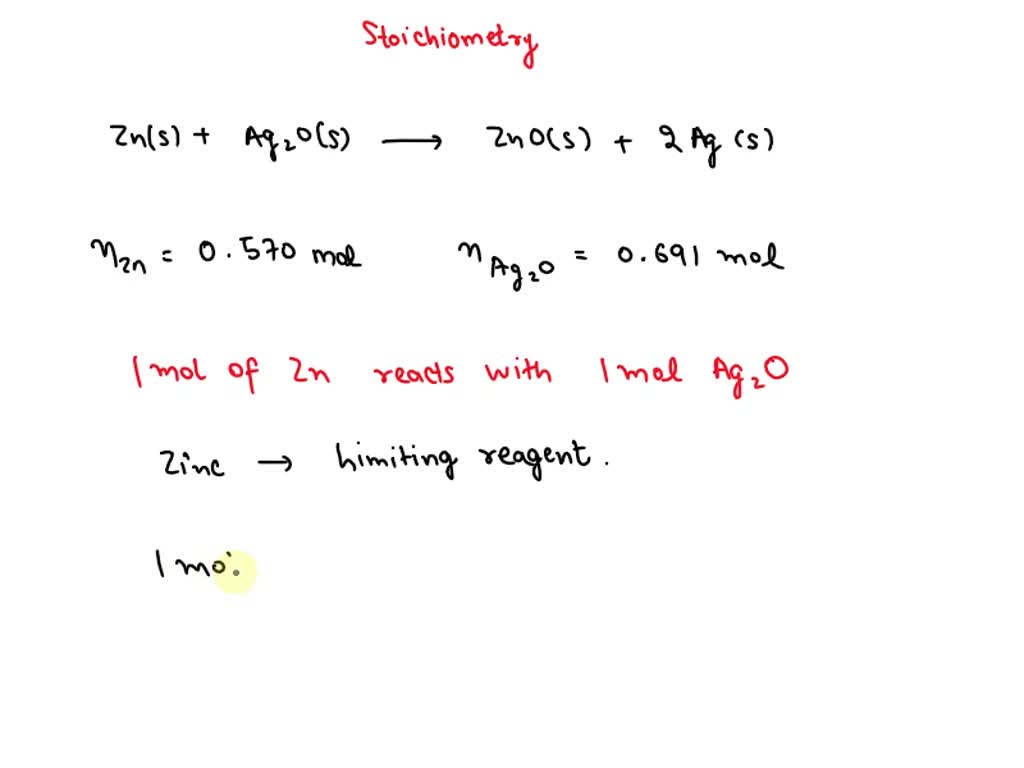 Stoichiometry
Zn(s) + Ag₂O(s) → ZnO(s) + 2Ag(s)
n_Zn = 0.570 mol n_Ag₂O = 0.691 mol
1 mol of Zn reacts with 1 mol Ag₂O
Zinc → Limiting reagent.
1 mo